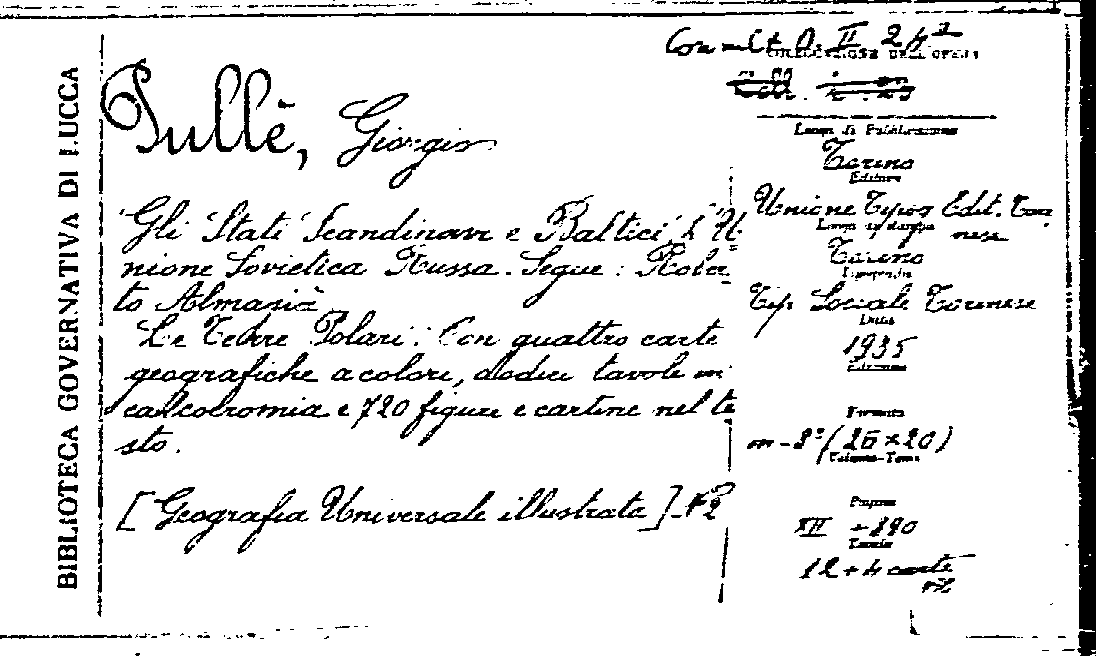 BIBLIOTECA GOVERNATIVA DI LUCCA
Pullè, Giorgio
Gli Stati Scandinavi e Baltici, L'U=
nione Sovietica Russa. Segue: Rober=
to Almagià
Le Terre Polari: Con quattro carte
geografiche a colori, dodici tavole in
calcocromia e 720 figure e cartine nel te
sto.
[Geografia Universale illustrata]
Consult.
COLLOCAZIONE DELL'OPERA
Coll.
Luogo di Pubblicazione
Torino
Editore
Unione Tipog Edit. Tori
nese
Luogo di stampa
Torino
Tipografia
Tip Sociale Torinese
Data
1935
Edizione
Formato
in-8° (26×20)
Volume-Tomo
Pagine
XII + 890
Tavole
12 + 4 carte